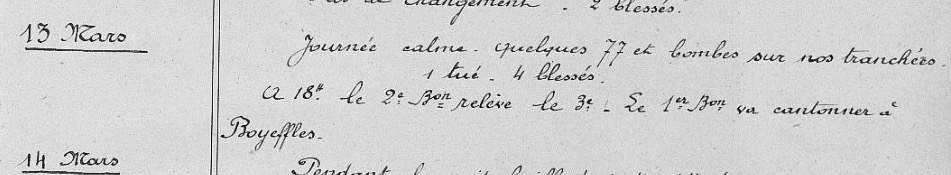 changement. 2 blessés.
13 Mars
Journée calme. quelques 77 et bombes sur nos tranchées.
1 tué. 4 blessés.
A 18h. le 2e Bon relève le 3e. Le 1er Bon va cantonner à
Boyeffles.
14 Mars
Pendant